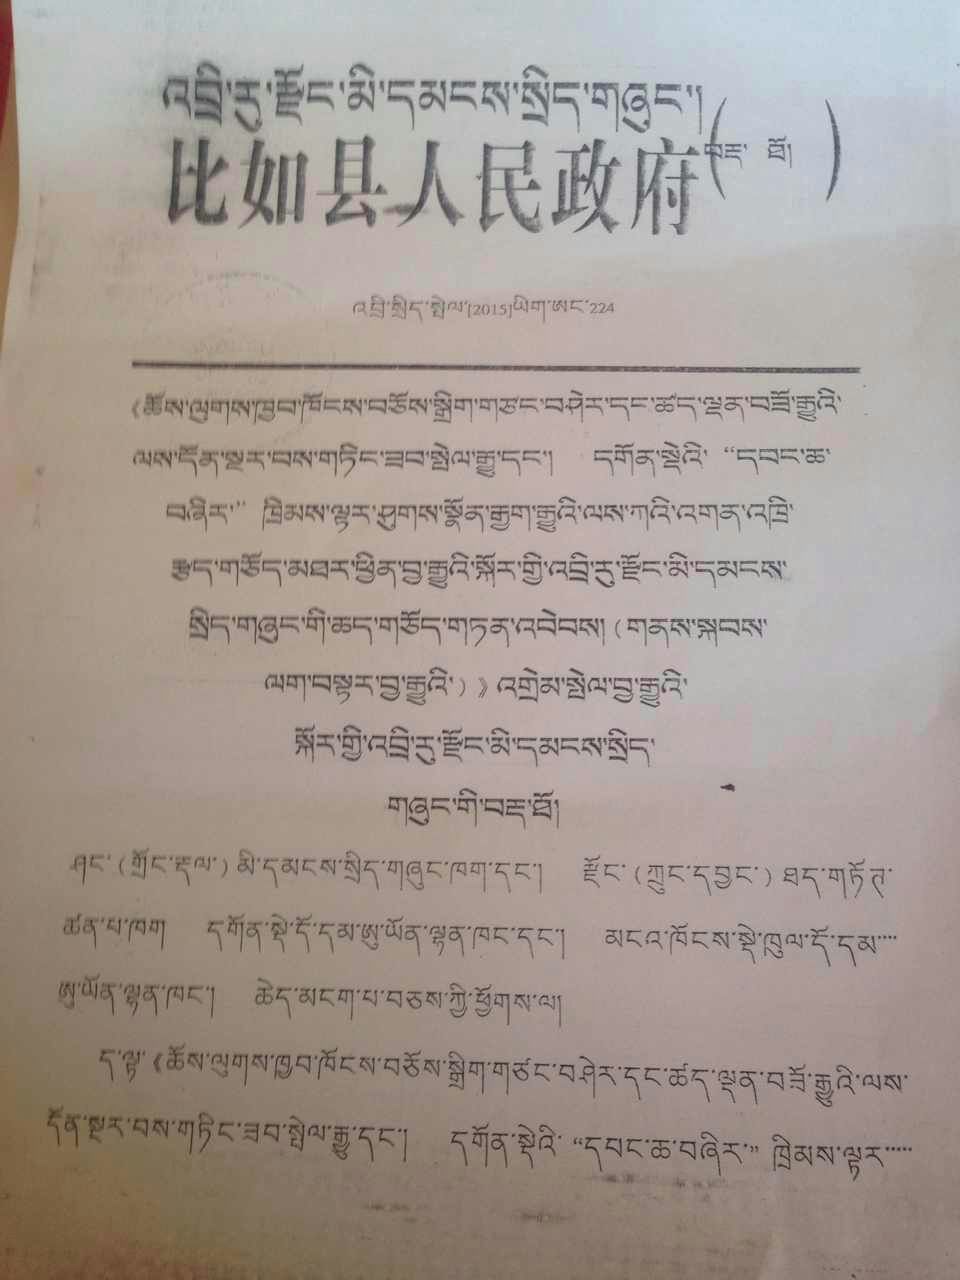 འབྲི་རུ་རྫོང་མི་དམངས་སྲིད་གཞུང་།
比如县人民政府(བརྡ་ ཐོ།)
འབྲི་སྲིད་སྤེལ་[2015]ཡིག་ཨང་224
《ཆོས་ལུགས་ཁྱབ་ཁོངས་བཅོས་སྒྲིག་གཙང་བཤེར་དང་ཚད་ལྡན་བཟོ་རྒྱུའི་
ལས་དོན་སྔར་བས་གཏིང་ཟབ་སྤེལ་རྒྱུ་དང་། དགོན་སྡེའི་ “དབང་ཆ་
བཞིར་” ཁྲིམས་ལྟར་ཤུགས་སྣོན་རྒྱག་རྒྱུའི་ལས་ཀའི་འགན་འཁྲི་
རྩད་གཅོད་མཐར་ཕྱིན་བྱ་རྒྱུའི་སྐོར་གྱི་འབྲི་རུ་རྫོང་མི་དམངས་
སྲིད་གཞུང་གི་ཆད་གཅོད་གཏན་འབེབས། (གནས་སྐབས་
ལག་བསྟར་བྱ་རྒྱུའི་)》འགྲེམ་སྤེལ་བྱ་རྒྱུའི་
སྐོར་གྱི་འབྲི་རུ་རྫོང་མི་དམངས་སྲིད་
གཞུང་གི་བརྡ་ཐོ།
ཤང་(གྲོང་རྡལ་)མི་དམངས་སྲིད་གཞུང་ཁག་དང་། རྫོང་(ཀྲུང་དབྱང་)ཐད་གཏོགས་
ཚན་པ་ཁག དགོན་སྡེ་དོ་དམ་ཨུ་ཡོན་ལྷན་ཁང་དང་། མངའ་ཁོངས་སྡེ་ཁུལ་དོ་དམ་
ཨུ་ཡོན་ལྷན་ཁང་། ཆེད་མངག་པ་བཅས་ཀྱི་ཕྱོགས་ལ།
ད་ལྟ་《ཆོས་ལུགས་ཁྱབ་ཁོངས་བཅོས་སྒྲིག་གཙང་བཤེར་དང་ཚད་ལྡན་བཟོ་རྒྱུའི་ལས་
དོན་སྔར་བས་གཏིང་ཟབ་སྤེལ་རྒྱུ་དང་། དགོན་སྡེའི་“དབང་ཆ་བཞིར་” ཁྲིམས་ལྟར་